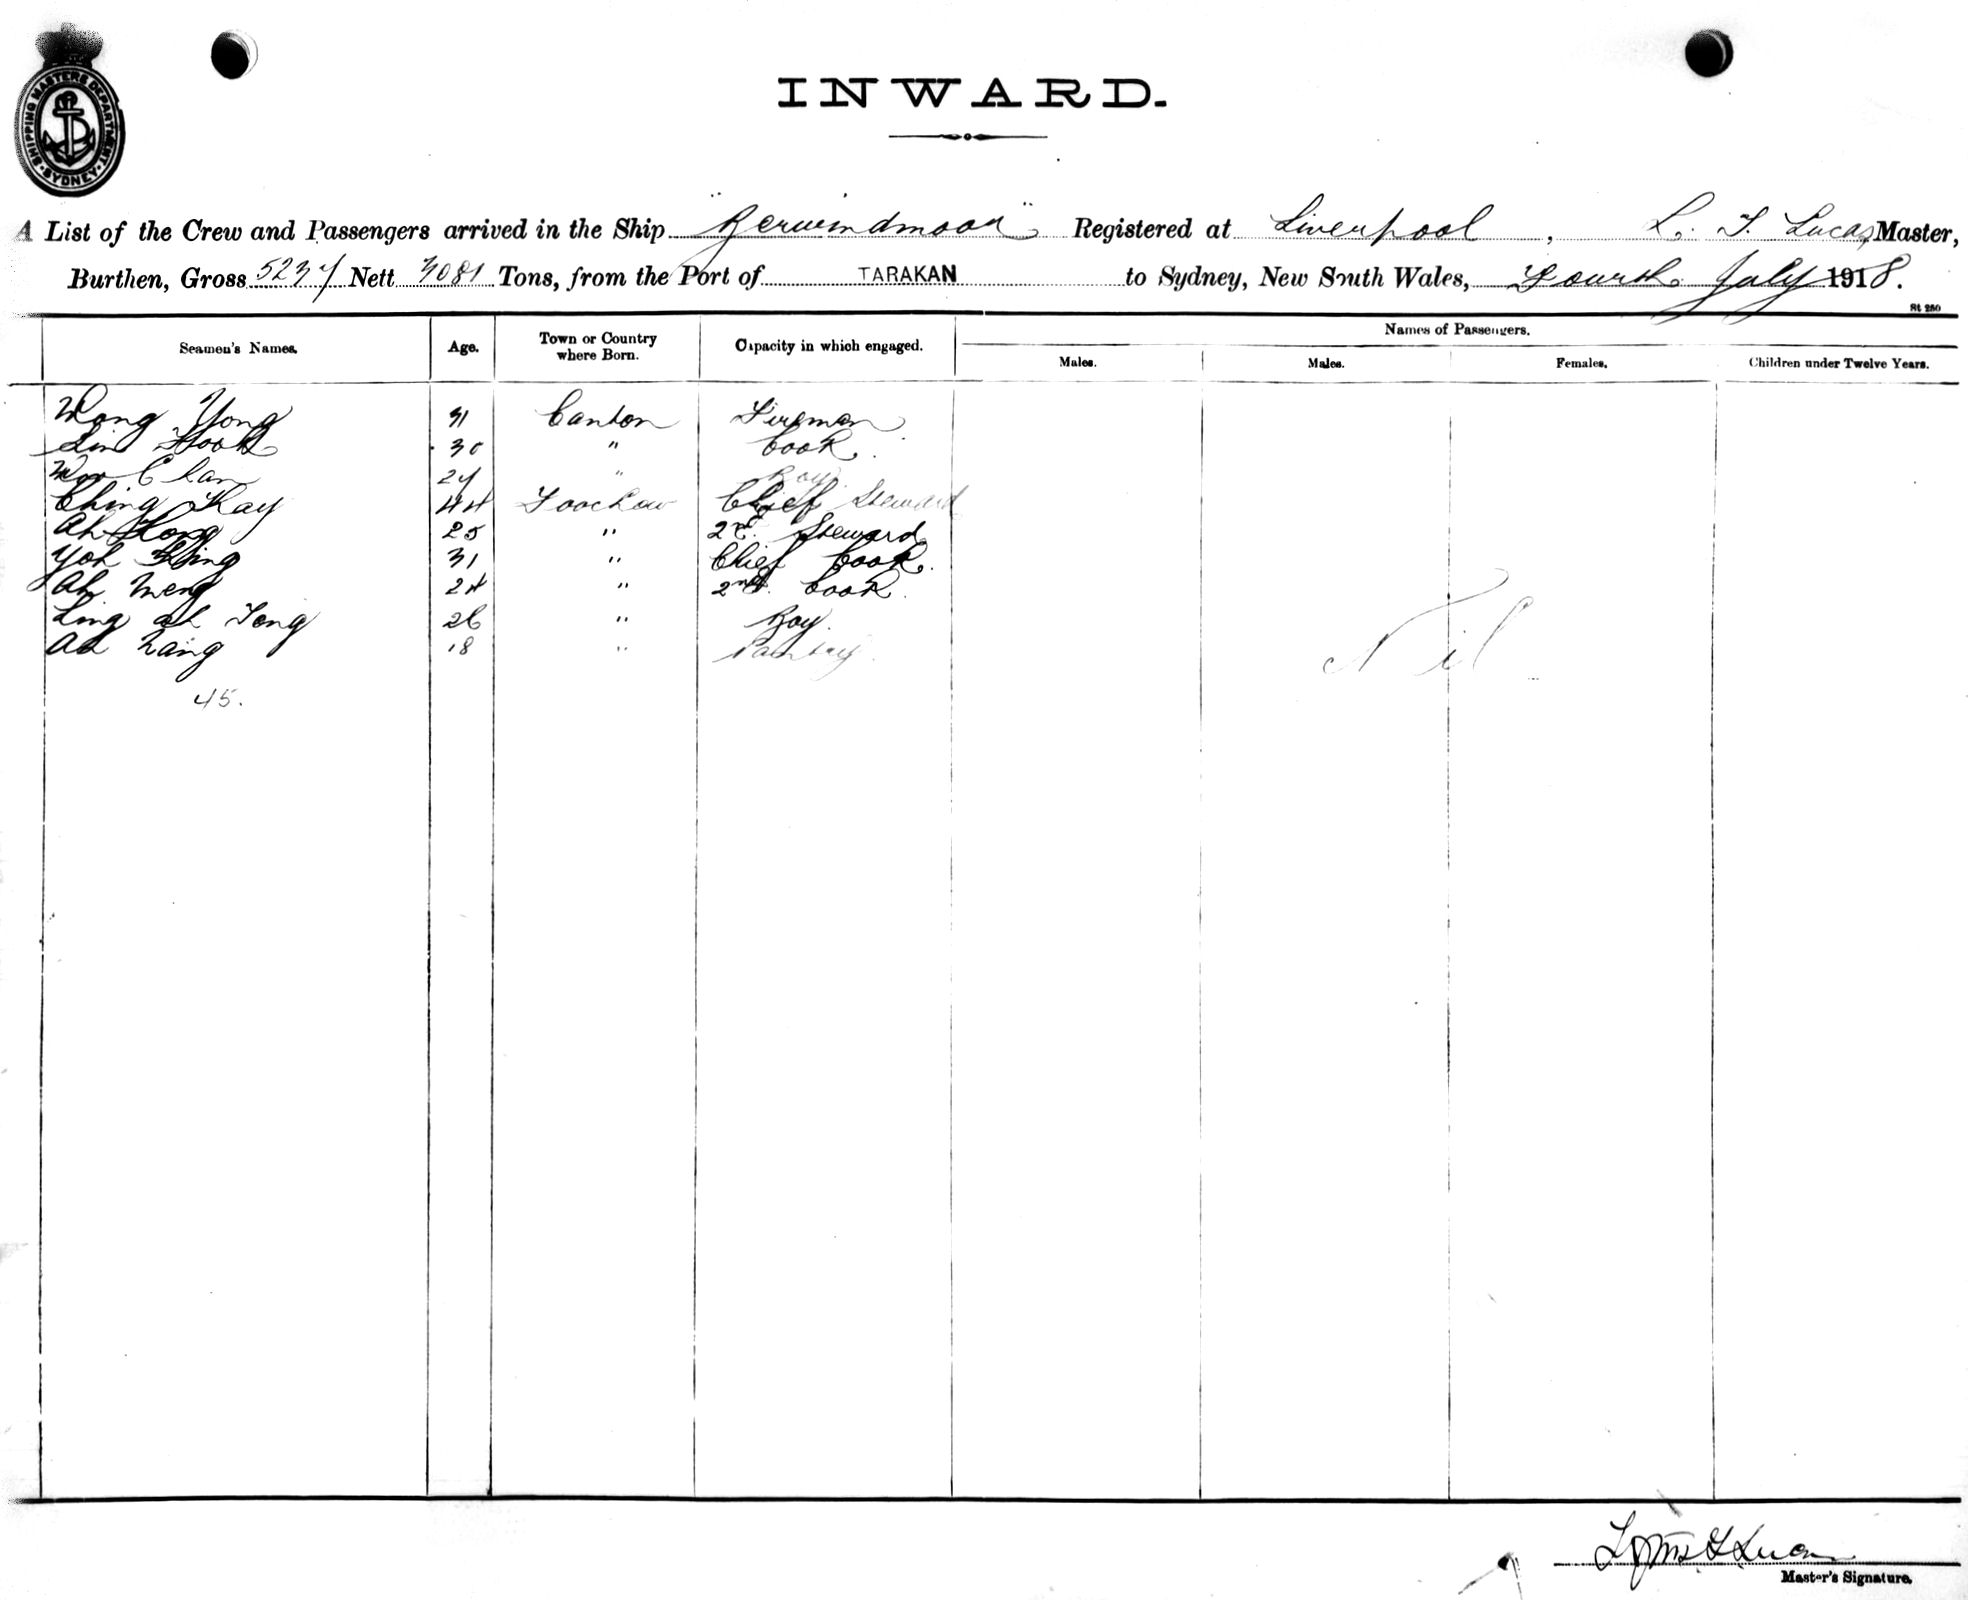 SHIPPING MASTERS DEPARTMENT
SYDNEY
INWARD.
A List of the Crew and Passengers arrived in the Ship "Derwindmoor" Registered at Liverpool, L. T. Lucas Master,
Burthen, Gross 5237 Nett 3081 Tons, from the Port of TARAKAN to Sydney, New South Wales, Fourth July 1918.
St 250
Seamen's Names. Age. Town or Country where Born. Capacity in which engaged. Names of Passengers.
Males. Males. Females. Children under Twelve Years.
Wong Yong 31 Canton Fireman
Lin Fook 30 " Cook.
Woo Chan 27 " Boy.
Ching Kay 44 Foochow Chief Steward
Ah Kong 25 " 2nd. Steward
Yoh Hing 31 " Chief Cook.
Ah Meng 24 " 2nd. Cook.
Ling ah Teng 26 " Boy.
Ah Nang 18 " Pantry.
Nil
45.
Master's Signature.